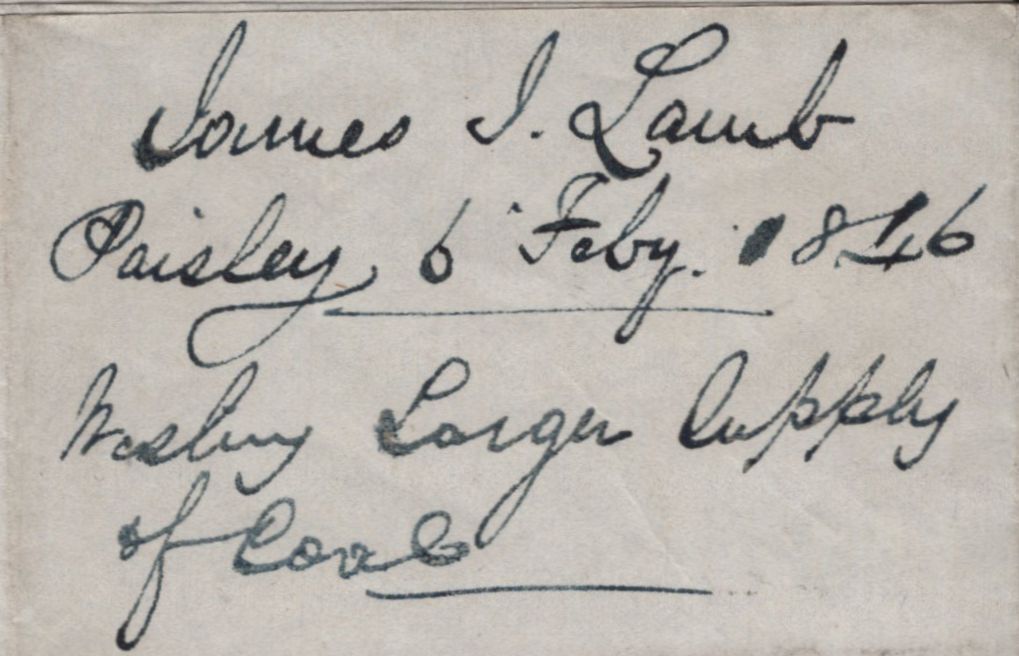 James J. Lamb
Paisley 6 Feby. 1846
Wesley Larger Supply
of Coal